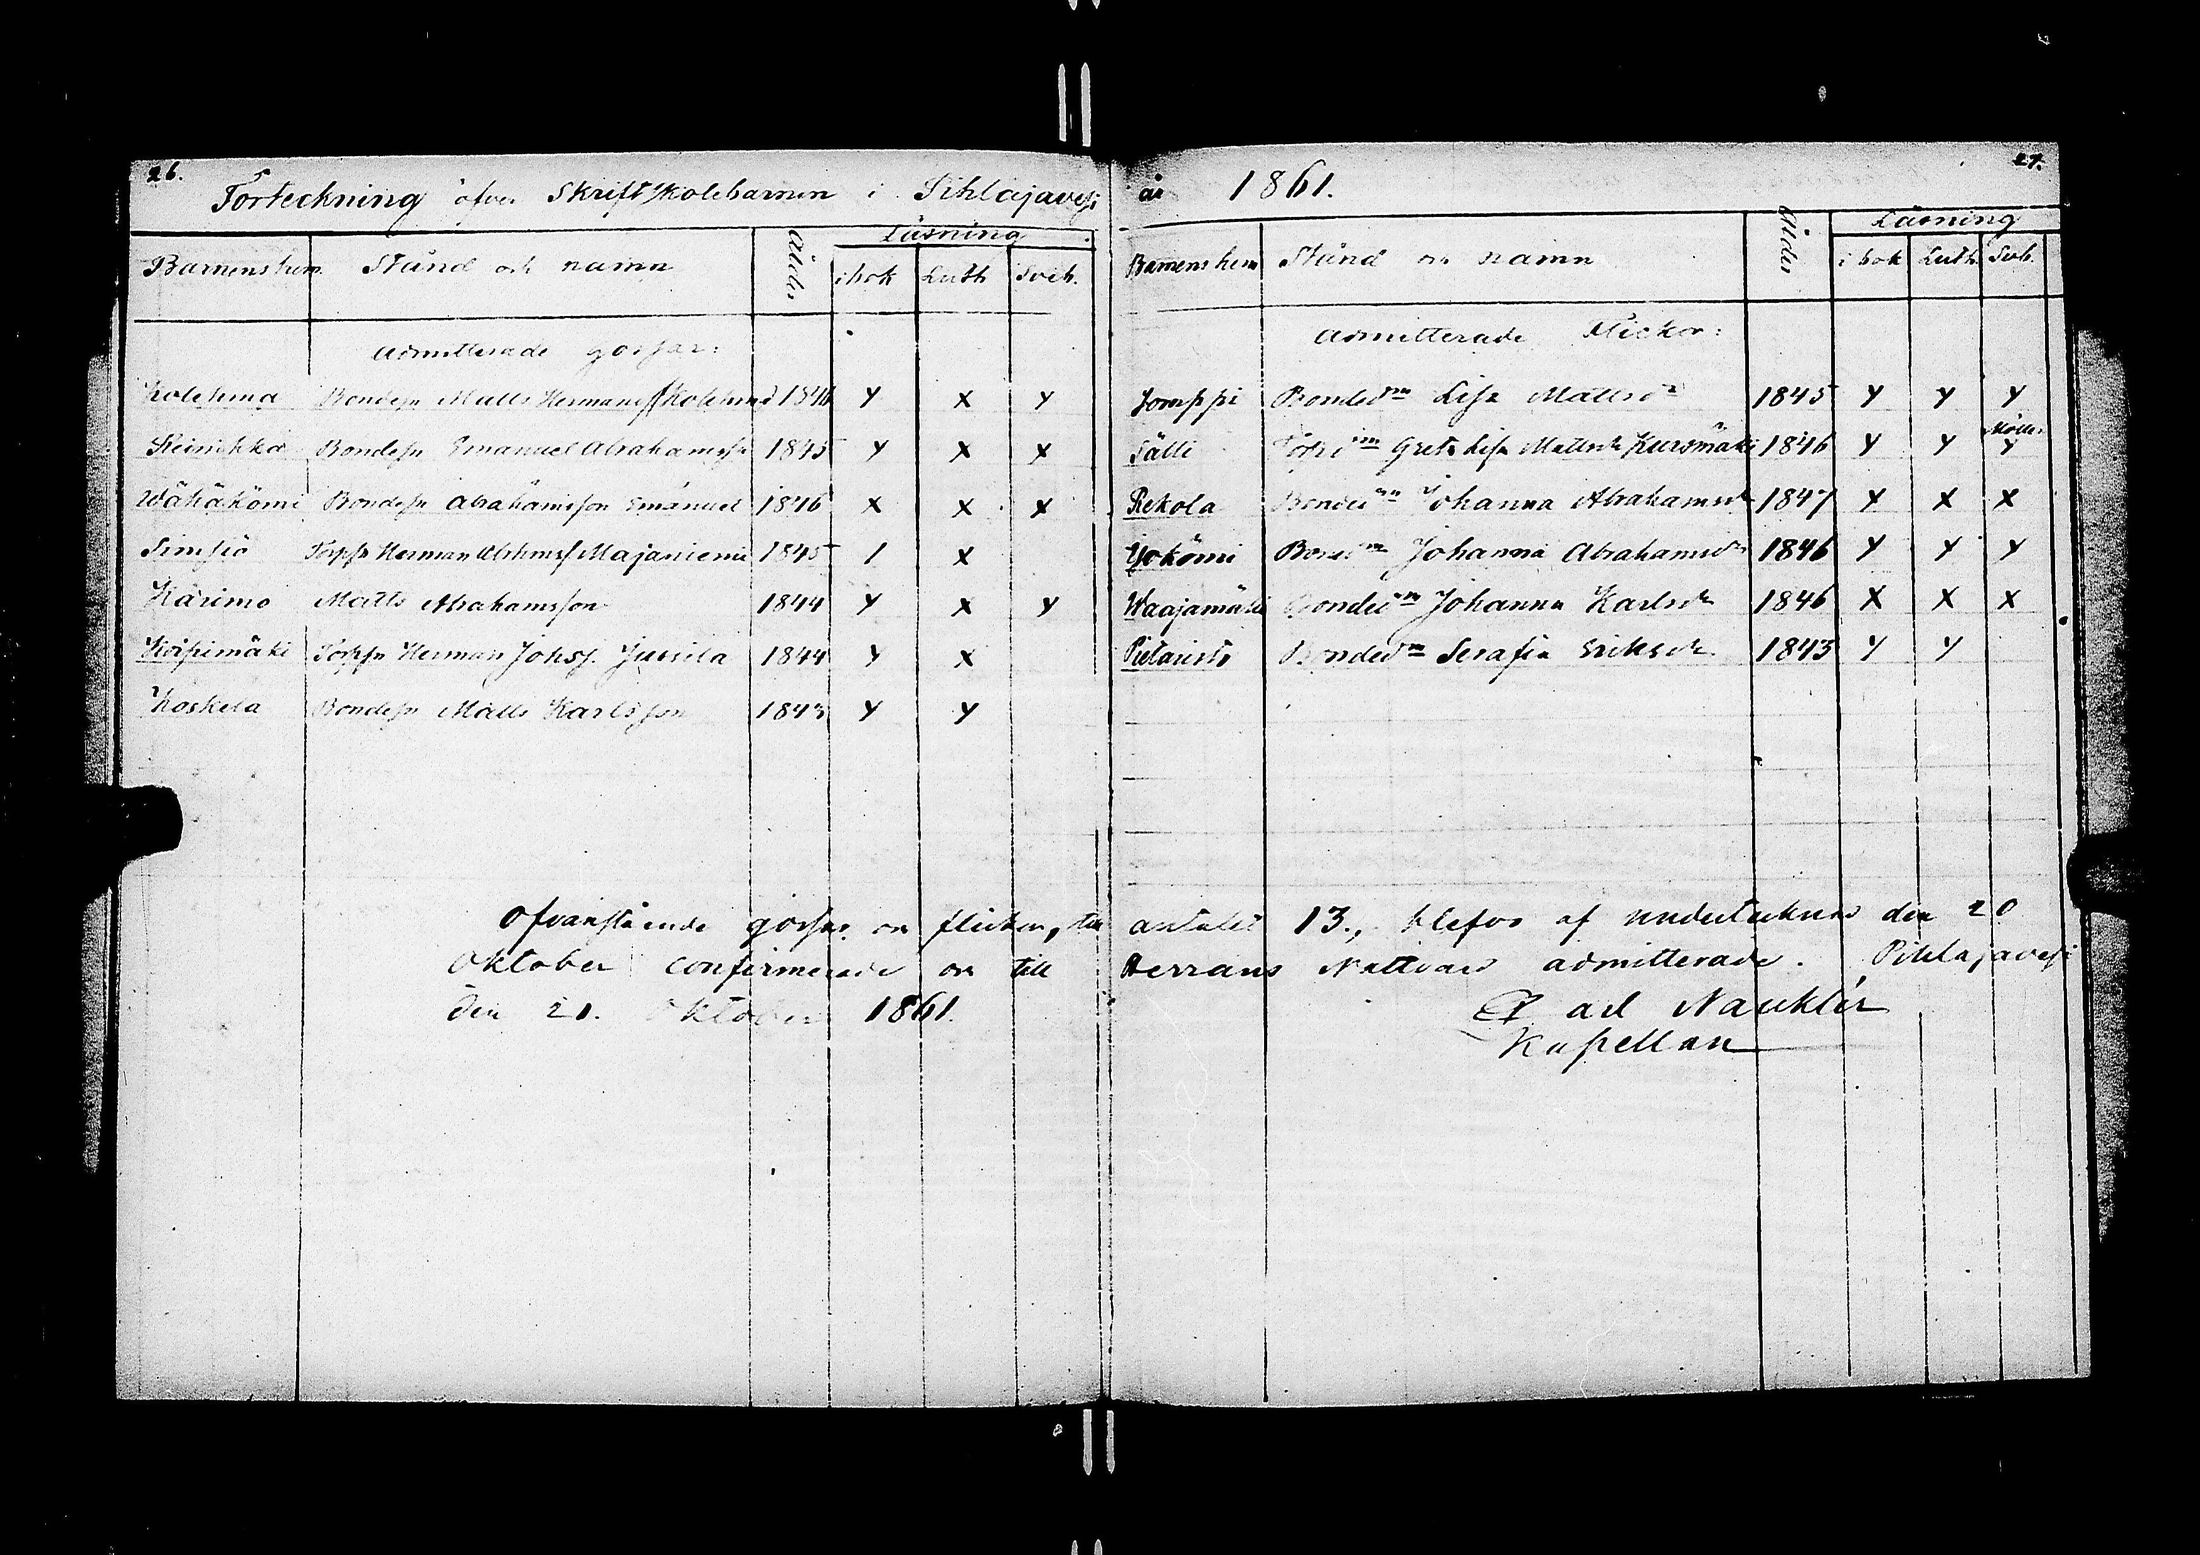 26.
Förteckning öfver Skriftskolebarnen i Pihlajavesi
Läsning
Barnens hem Stånd och namn Ålder i bok Luth Sveb.
Admitterade gossar:
Kolehma Bondesn Matts Hermanss Kolehma 1846 y x y
Reinikka Bondesn Emanuel Abrahamssn 1845 y x x
Wähäkömi Bondesn Abrahamsson Emanuel 1846 x x x
Simsiö Torpsn Herman Abrhmss Majaniemi 1845 / x
Kärimo Matts Abrahamsson 1844 y x y
Koipimäki Torpsn Herman Johss. Jussila 1844 y x
Koskela Bondesn Matts Karlsson 1843 y y
27.
år 1861.
Läsning
Barnens hem Stånd och namn Ålder i bok Luth. Sveb.
Admitterade flickor:
Jomppi Bondedrn Lisa Mattsdr 1845 y y y
Sälli Greta Lisa Mattsdr Kursmäki 1846 y y y
Rekola Bondedrn Johanna Abrahamsdr 1847 x x x
Yökömi Bondedrn Johanna Abrahamsdr 1846 y y y
Waajamäki Bondedrn Johanna Karlsdr 1846 x x x
Pietaristo Bondedrn Serafia Eriksdr 1843 y y
Ofvanstående gossar och flickor, till antalet 13., blefvo af undertecknad den 20
Oktober confirmerade och till Herrans Nattvard admitterade. Pihlajavesi
den 21. Oktober 1861.
ad Nauklér
Kapellan